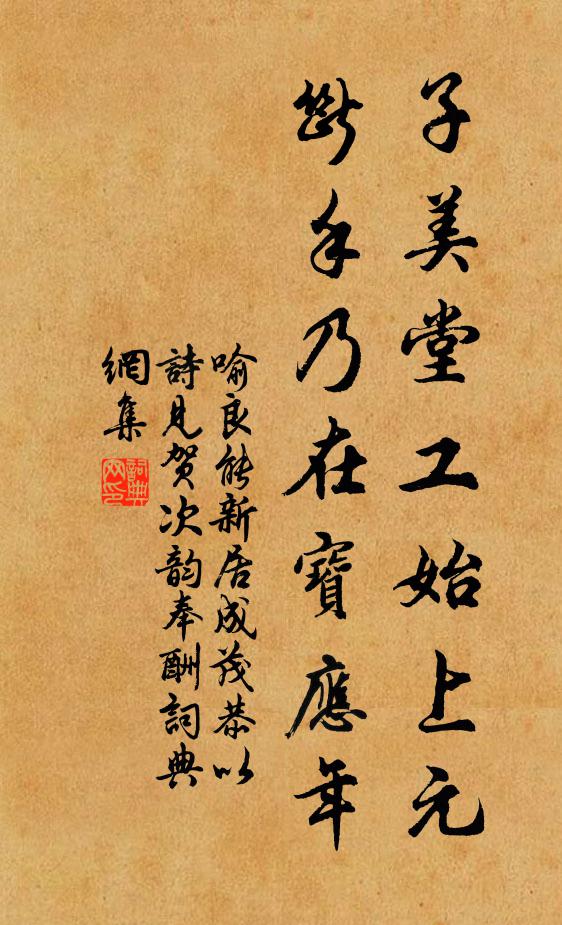 子美堂工始上元
斷手乃在寶應年
喻良能新居成茂恭以
詩見贺次韵奉酬詞典
網集
詞典
网印